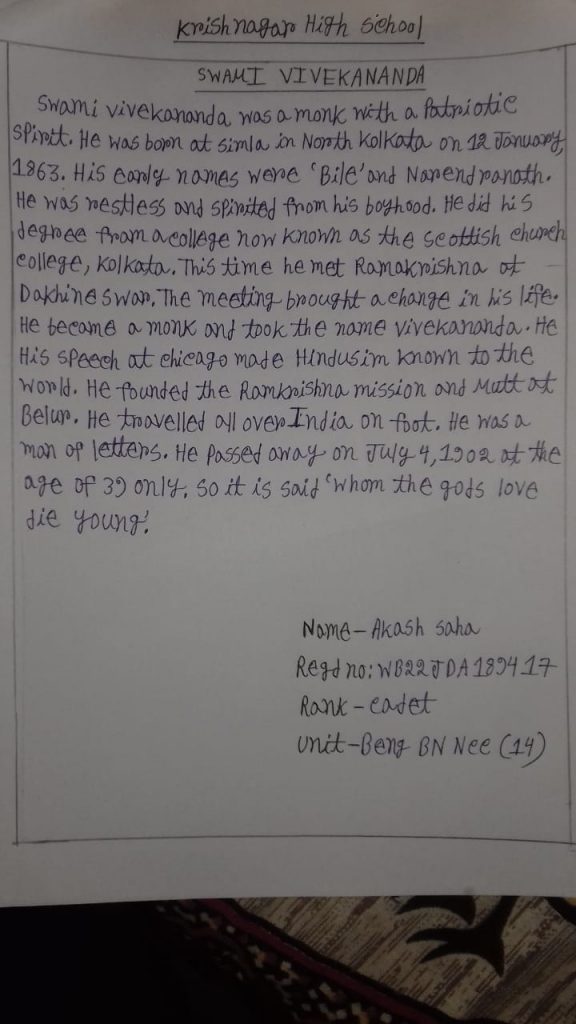 Krishnagar High School
SWAMI VIVEKANANDA
Swami vivekananda was a monk with a Patriotic
spirit. He was born at simla in North Kolkata on 12 January,
1863. His early names were 'Bile' and Narendranath.
He was restless and spirited from his boyhood. He did his
degree from a college now known as the scottish church
college, Kolkata. This time he met Ramakrishna at
Dakhineswar. The meeting brought a change in his life.
He became a monk and took the name vivekananda. He
His speech at chicago made Hindusim known to the
world. He founded the Ramkrishna mission and Mutt at
Belur. He travelled all over India on foot. He was a
man of letters. He passed away on July 4, 1902 at the
age of 39 only. so it is said 'whom the gods love
die young'.
Name - Akash saha
Regd no: WB22JDA189417
Rank - cadet
unit - Beng BN Nee (14)